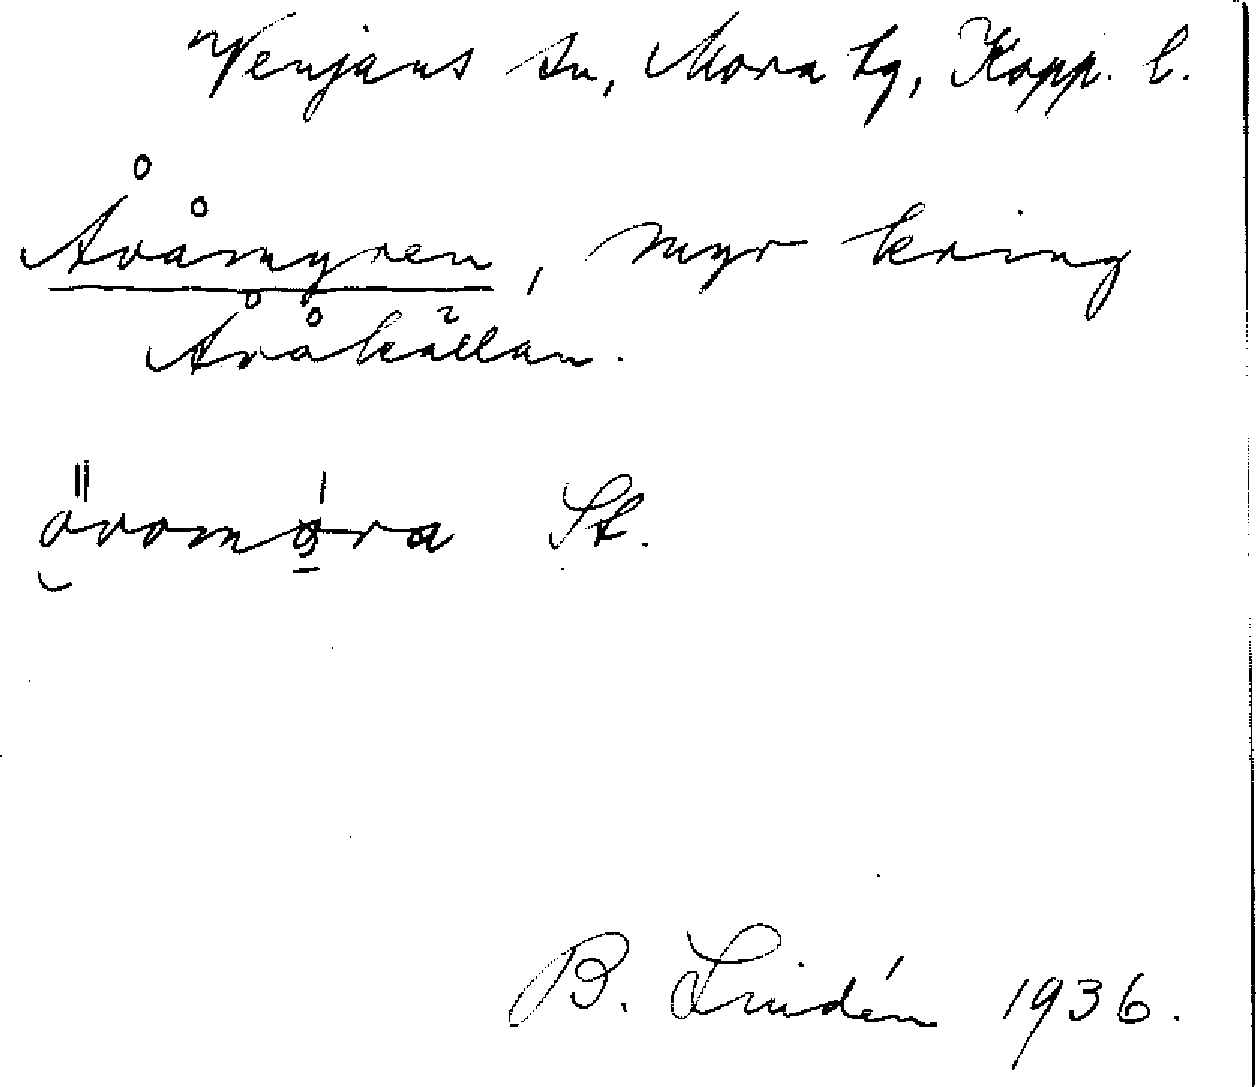 Venjans sn, Mora tg, Kopp. l.
Åråmyren, myr kring
Åråkällan.
St.
B. Lindén 1936.